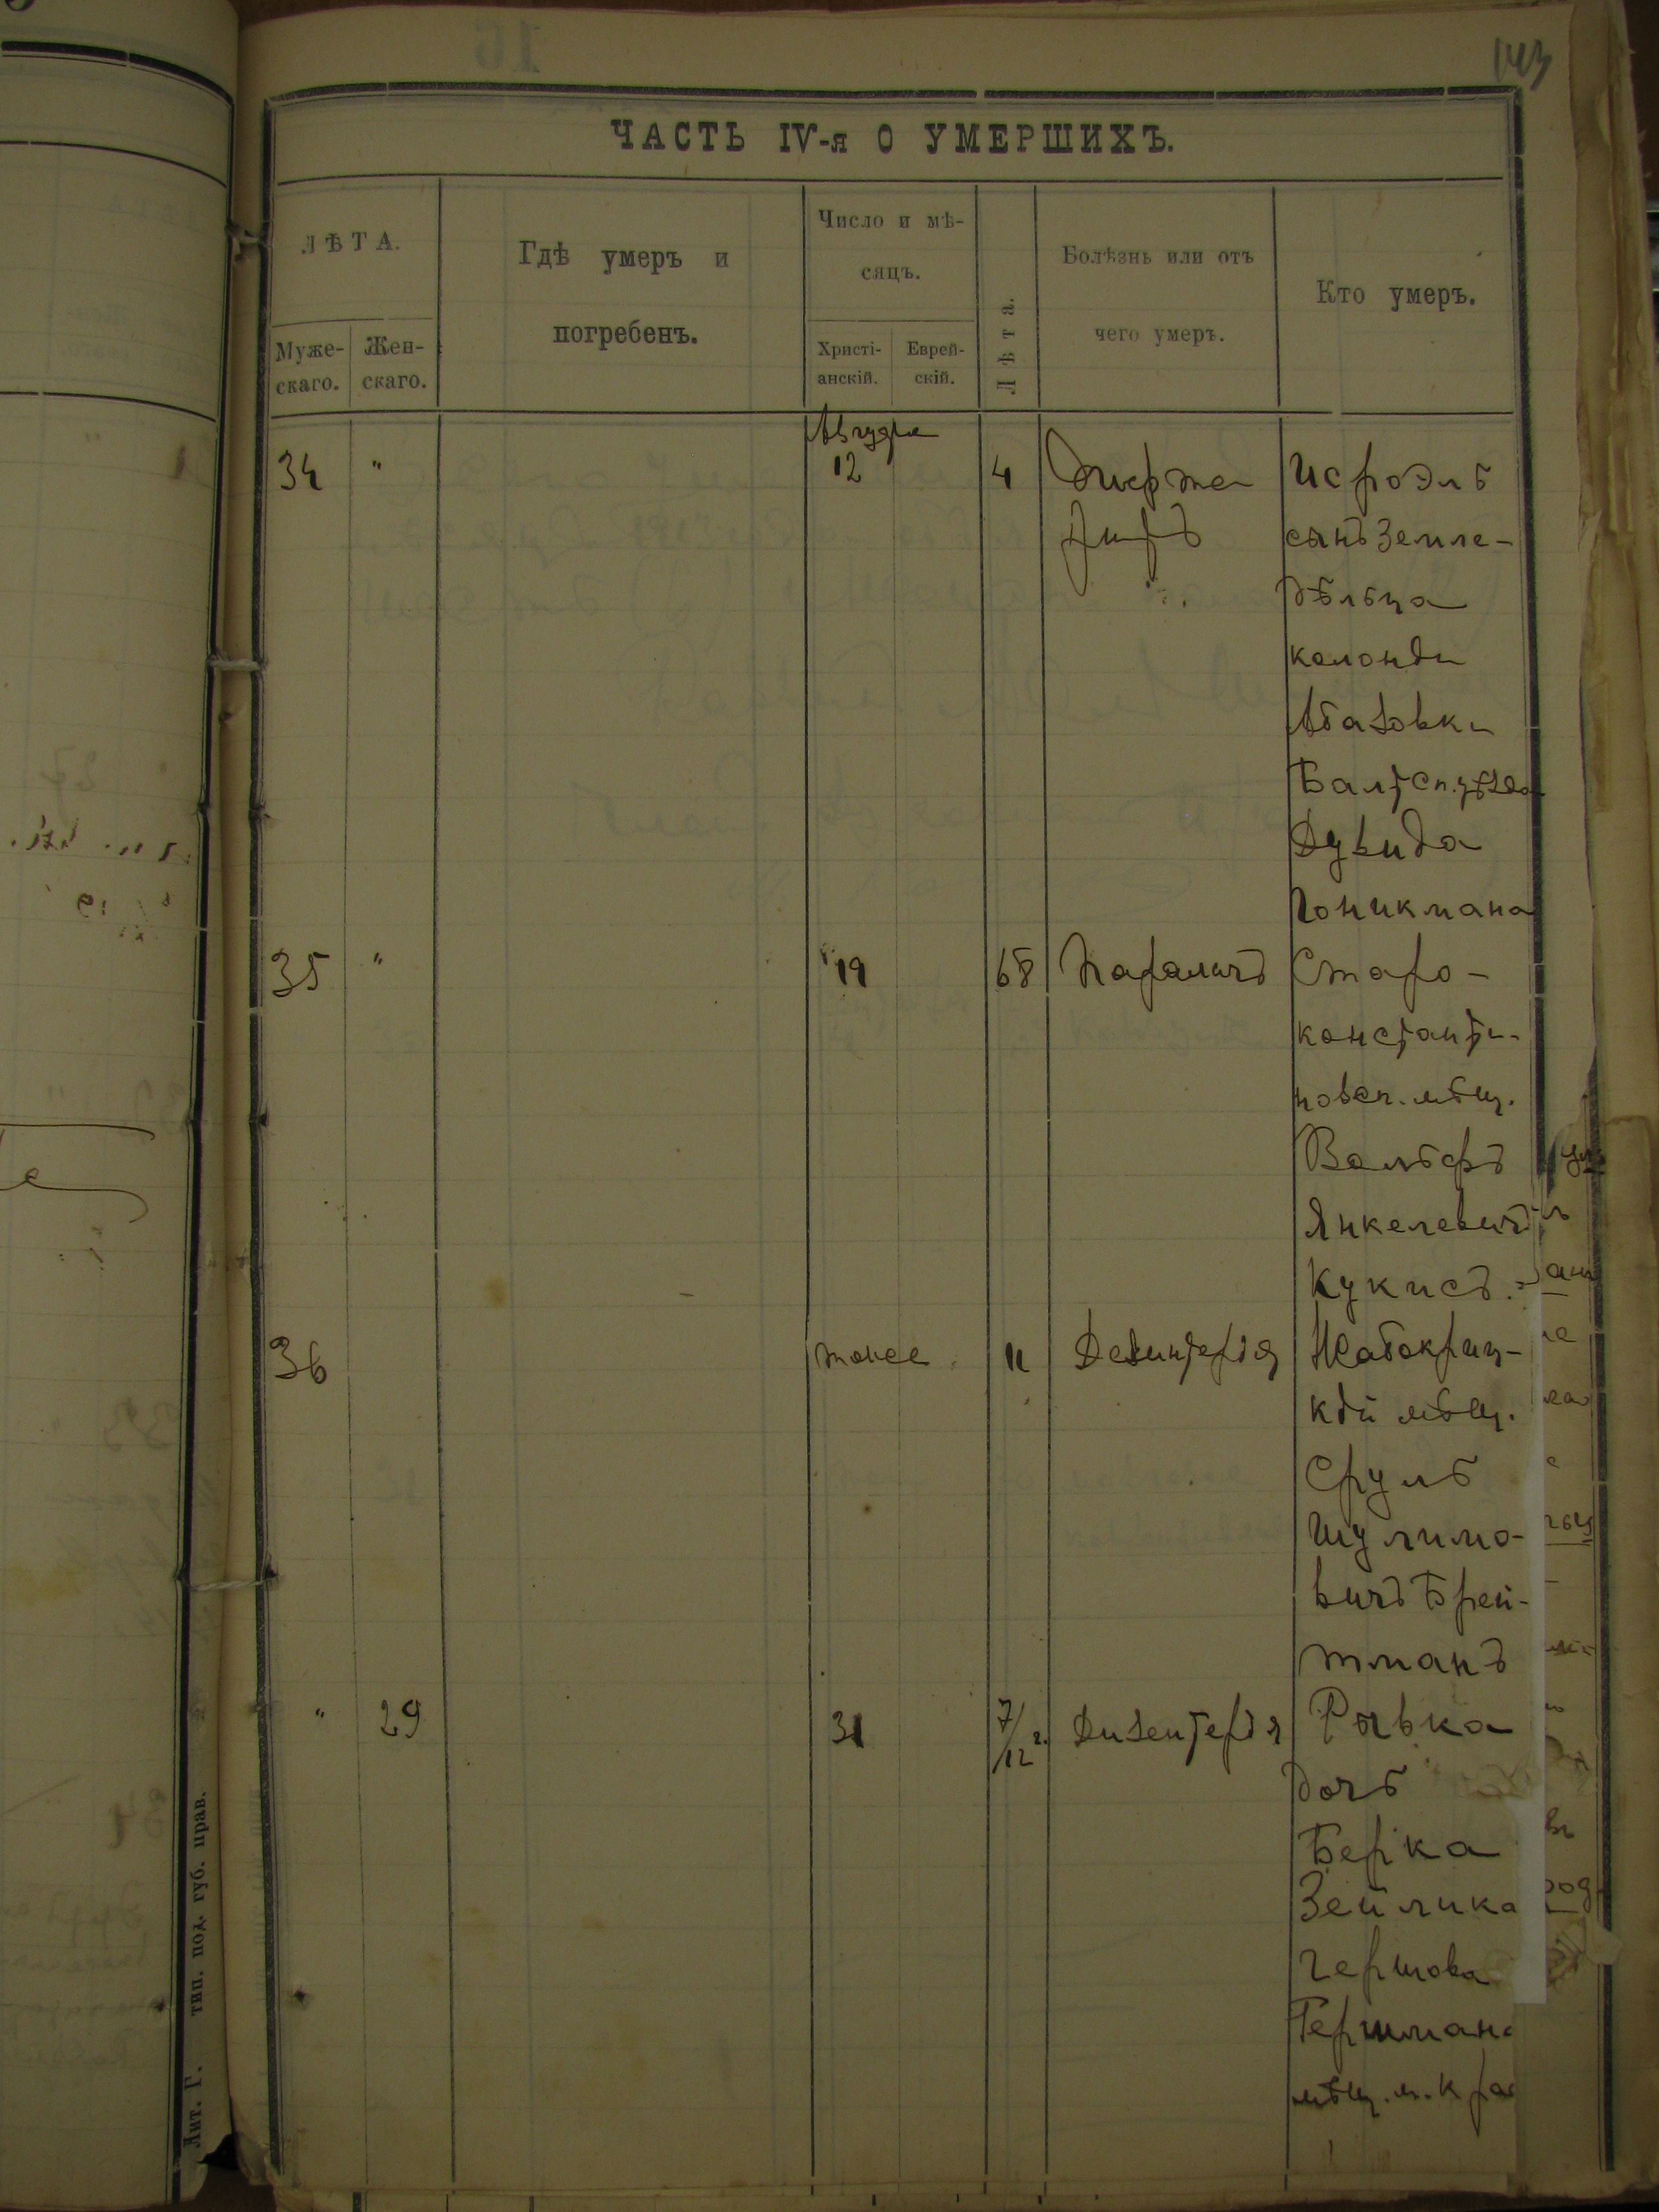 143
ЧАСТЬ IV-я О УМЕРШИХЪ.
ЛѢТА.
Муже-
скаго.
Жен-
скаго.
Гдѣ умеръ и
погребенъ.
Число и мѣ-
сяцъ.
Христі-
анскій.
Еврей-
скій.
Лѣта.
Болѣзнь или отъ
чего умеръ.
Кто умеръ.
Августа
34 " 12 4 Исроэль
сынъ Земле-
дѣльца
колоніи
Абазовки
Балтск. уѣзда
Дувида
Гоникмана
35 " 19 68 Параличъ Старо-
константи-
новск. мѣщ.
Вольфъ
Янкелевичъ
Кукисъ.
36 тоже 11 Дезинтерія Жабокриц-
кій мѣщ.
Сруль
Шулимо-
вичъ Брей-
тманъ
" 29 31 7/12 г. Дизентерія Рывка
дочь
Берка
Зейлика
Гершова
Гершмана
мѣщ. м. Крас
Лит. Г. тип. под. губ. прав.